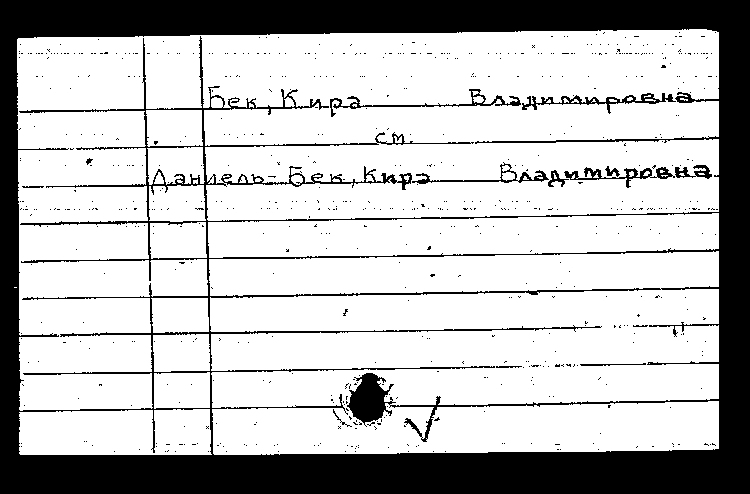 Бек, Кира Владимировна
см.
Даниель-Бек, Кира Владимировна